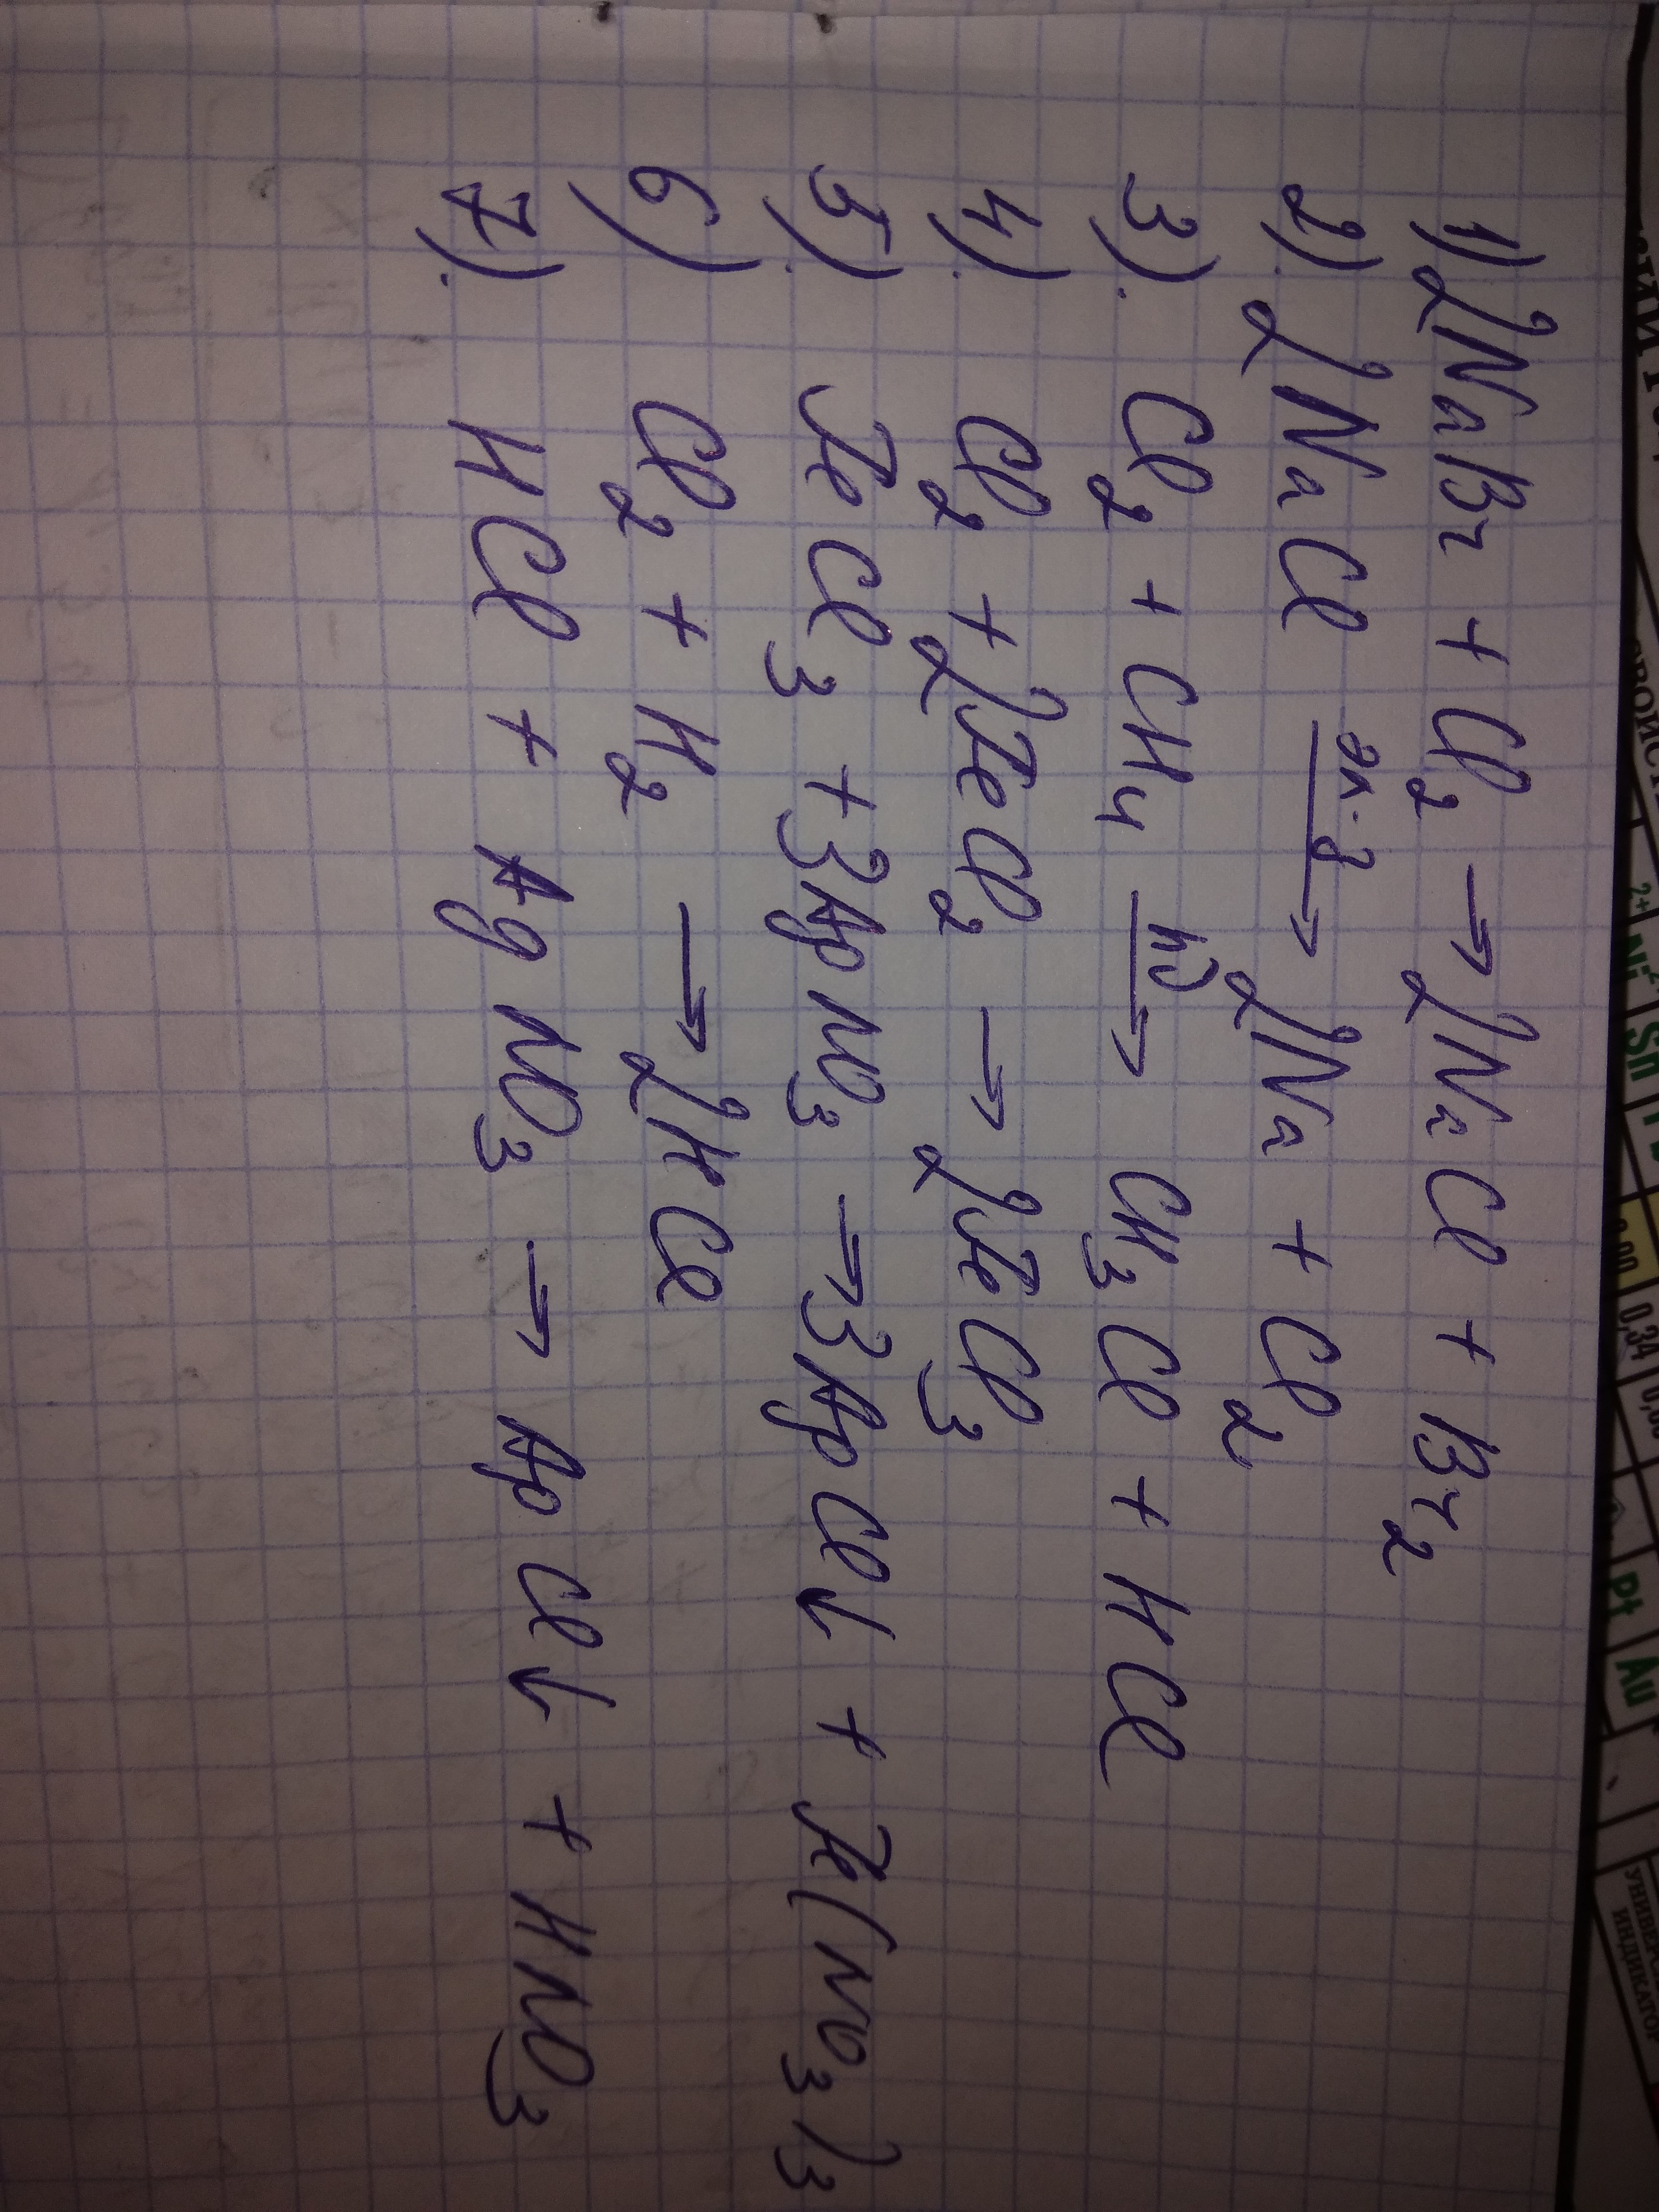 1) 2NaBr + Cl₂ → 2NaCl + Br₂
2). 2NaCl эл-з→ 2Na + Cl₂
3). Cl₂ + CH₄ hν→ CH₃Cl + HCl
4). Cl₂ + 2FeCl₂ → 2FeCl₃
5). FeCl₃ + 3AgNO₃ → 3AgCl↓ + Fe(NO₃)₃
6) Cl₂ + H₂ → 2HCl
7). HCl + AgNO₃ → AgCl↓ + HNO₃
2+
Sn
0,34
Pt
Au
ИНДИКАТОР